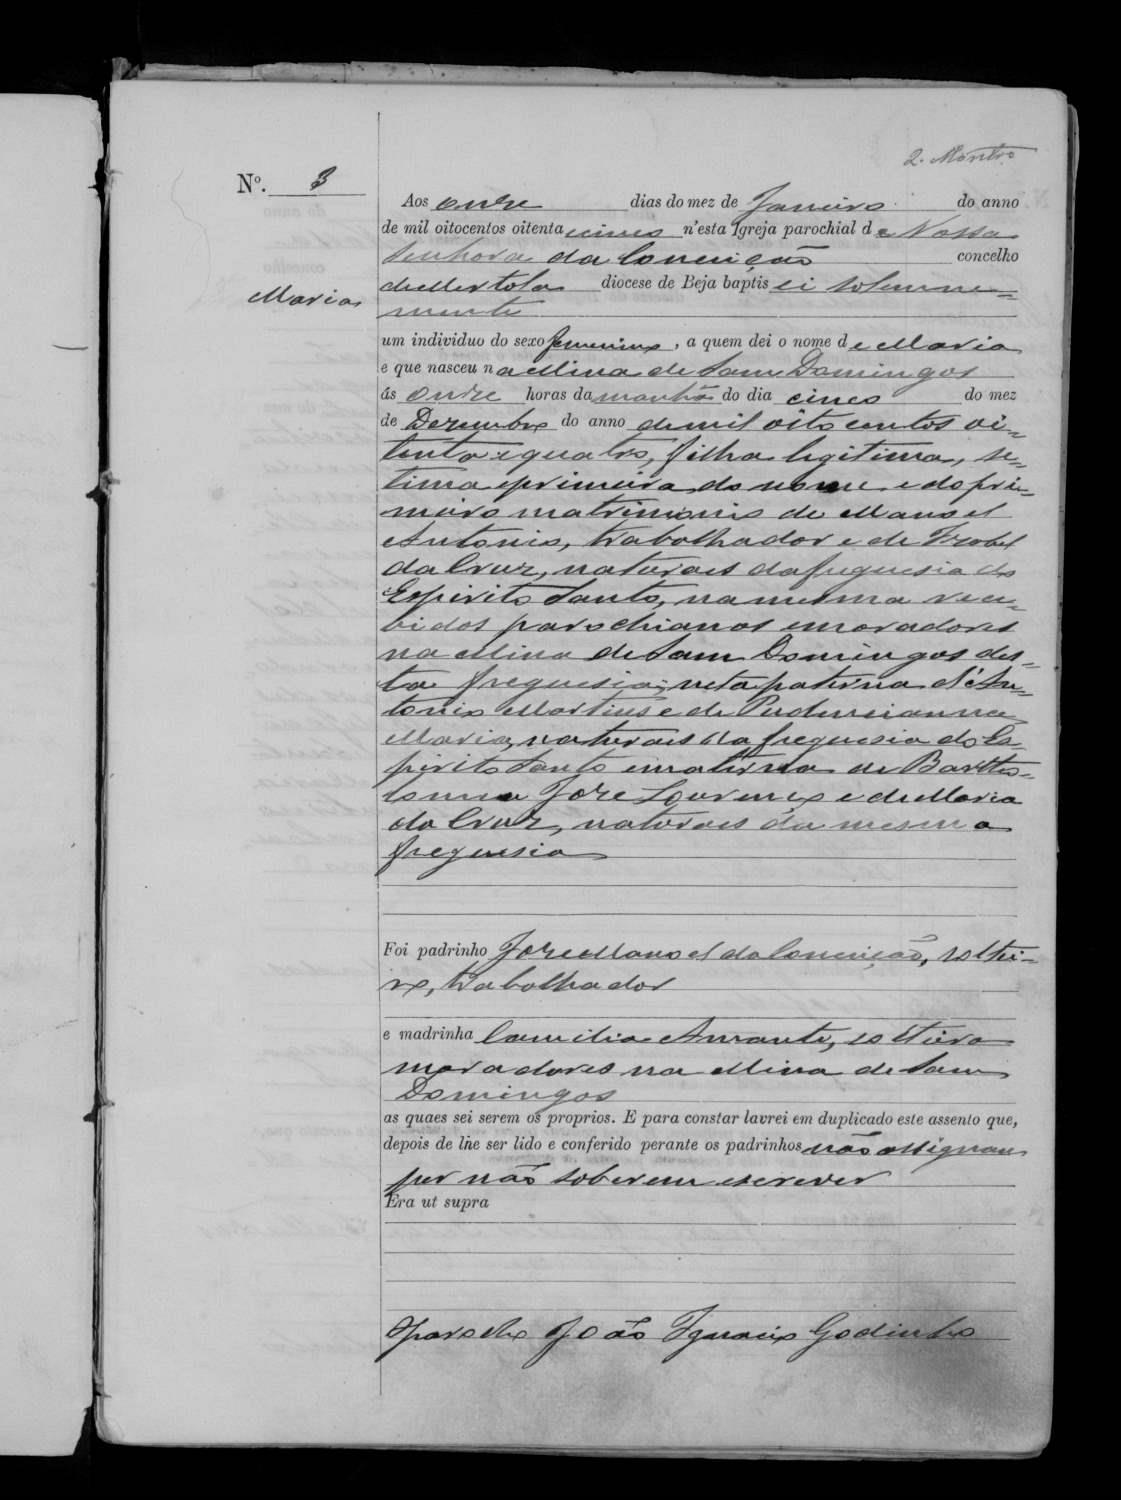 2. Montro
Nº. 3
Aos onze dias do mez de Janeiro do anno
de mil oitocentos oitenta e cinco n'esta Igreja parochial de Nossa
Senhora da Conceição concelho
Maria
de Mertola diocese de Beja baptisei solemne-
mente
um individuo do sexo femenino, a quem dei o nome de Maria
e que nasceu na Mina de Sam Domingos
ás onze horas da manhã do dia cinco do mez
de Dezembro do anno de mil oito centos oi-
tenta e quatro, filha legitima, se-
tima e primeira do nome e do pri-
meiro matrimonio de Manoel
Antonio, trabalhador e de Izabel
da Cruz, naturaes da freguesia do
Espirito Santo, na mesma rece-
bidos parochianos e moradores
na Mina de Sam Domingos des-
ta freguesia; neta paterna d'An-
tonio Martins e de Prudencianna
Maria, naturaes da freguesia do Es-
pirito Santo e materna de Bartho-
lomeu Joze Lourenço e de Maria
da Cruz, naturaes da mesma
freguesia
Foi padrinho Joze Manoel da Conceição, soltei-
ro, trabalhador
e madrinha Camilia Amante, solteira
moradores na Mina de Sam
Domingos
as quaes sei serem os proprios. E para constar lavrei em duplicado este assento que,
depois de lhe ser lido e conferido perante os padrinhos não assignam
por não saberem escrever
Era ut supra
O parocho João Ignacio Godinho